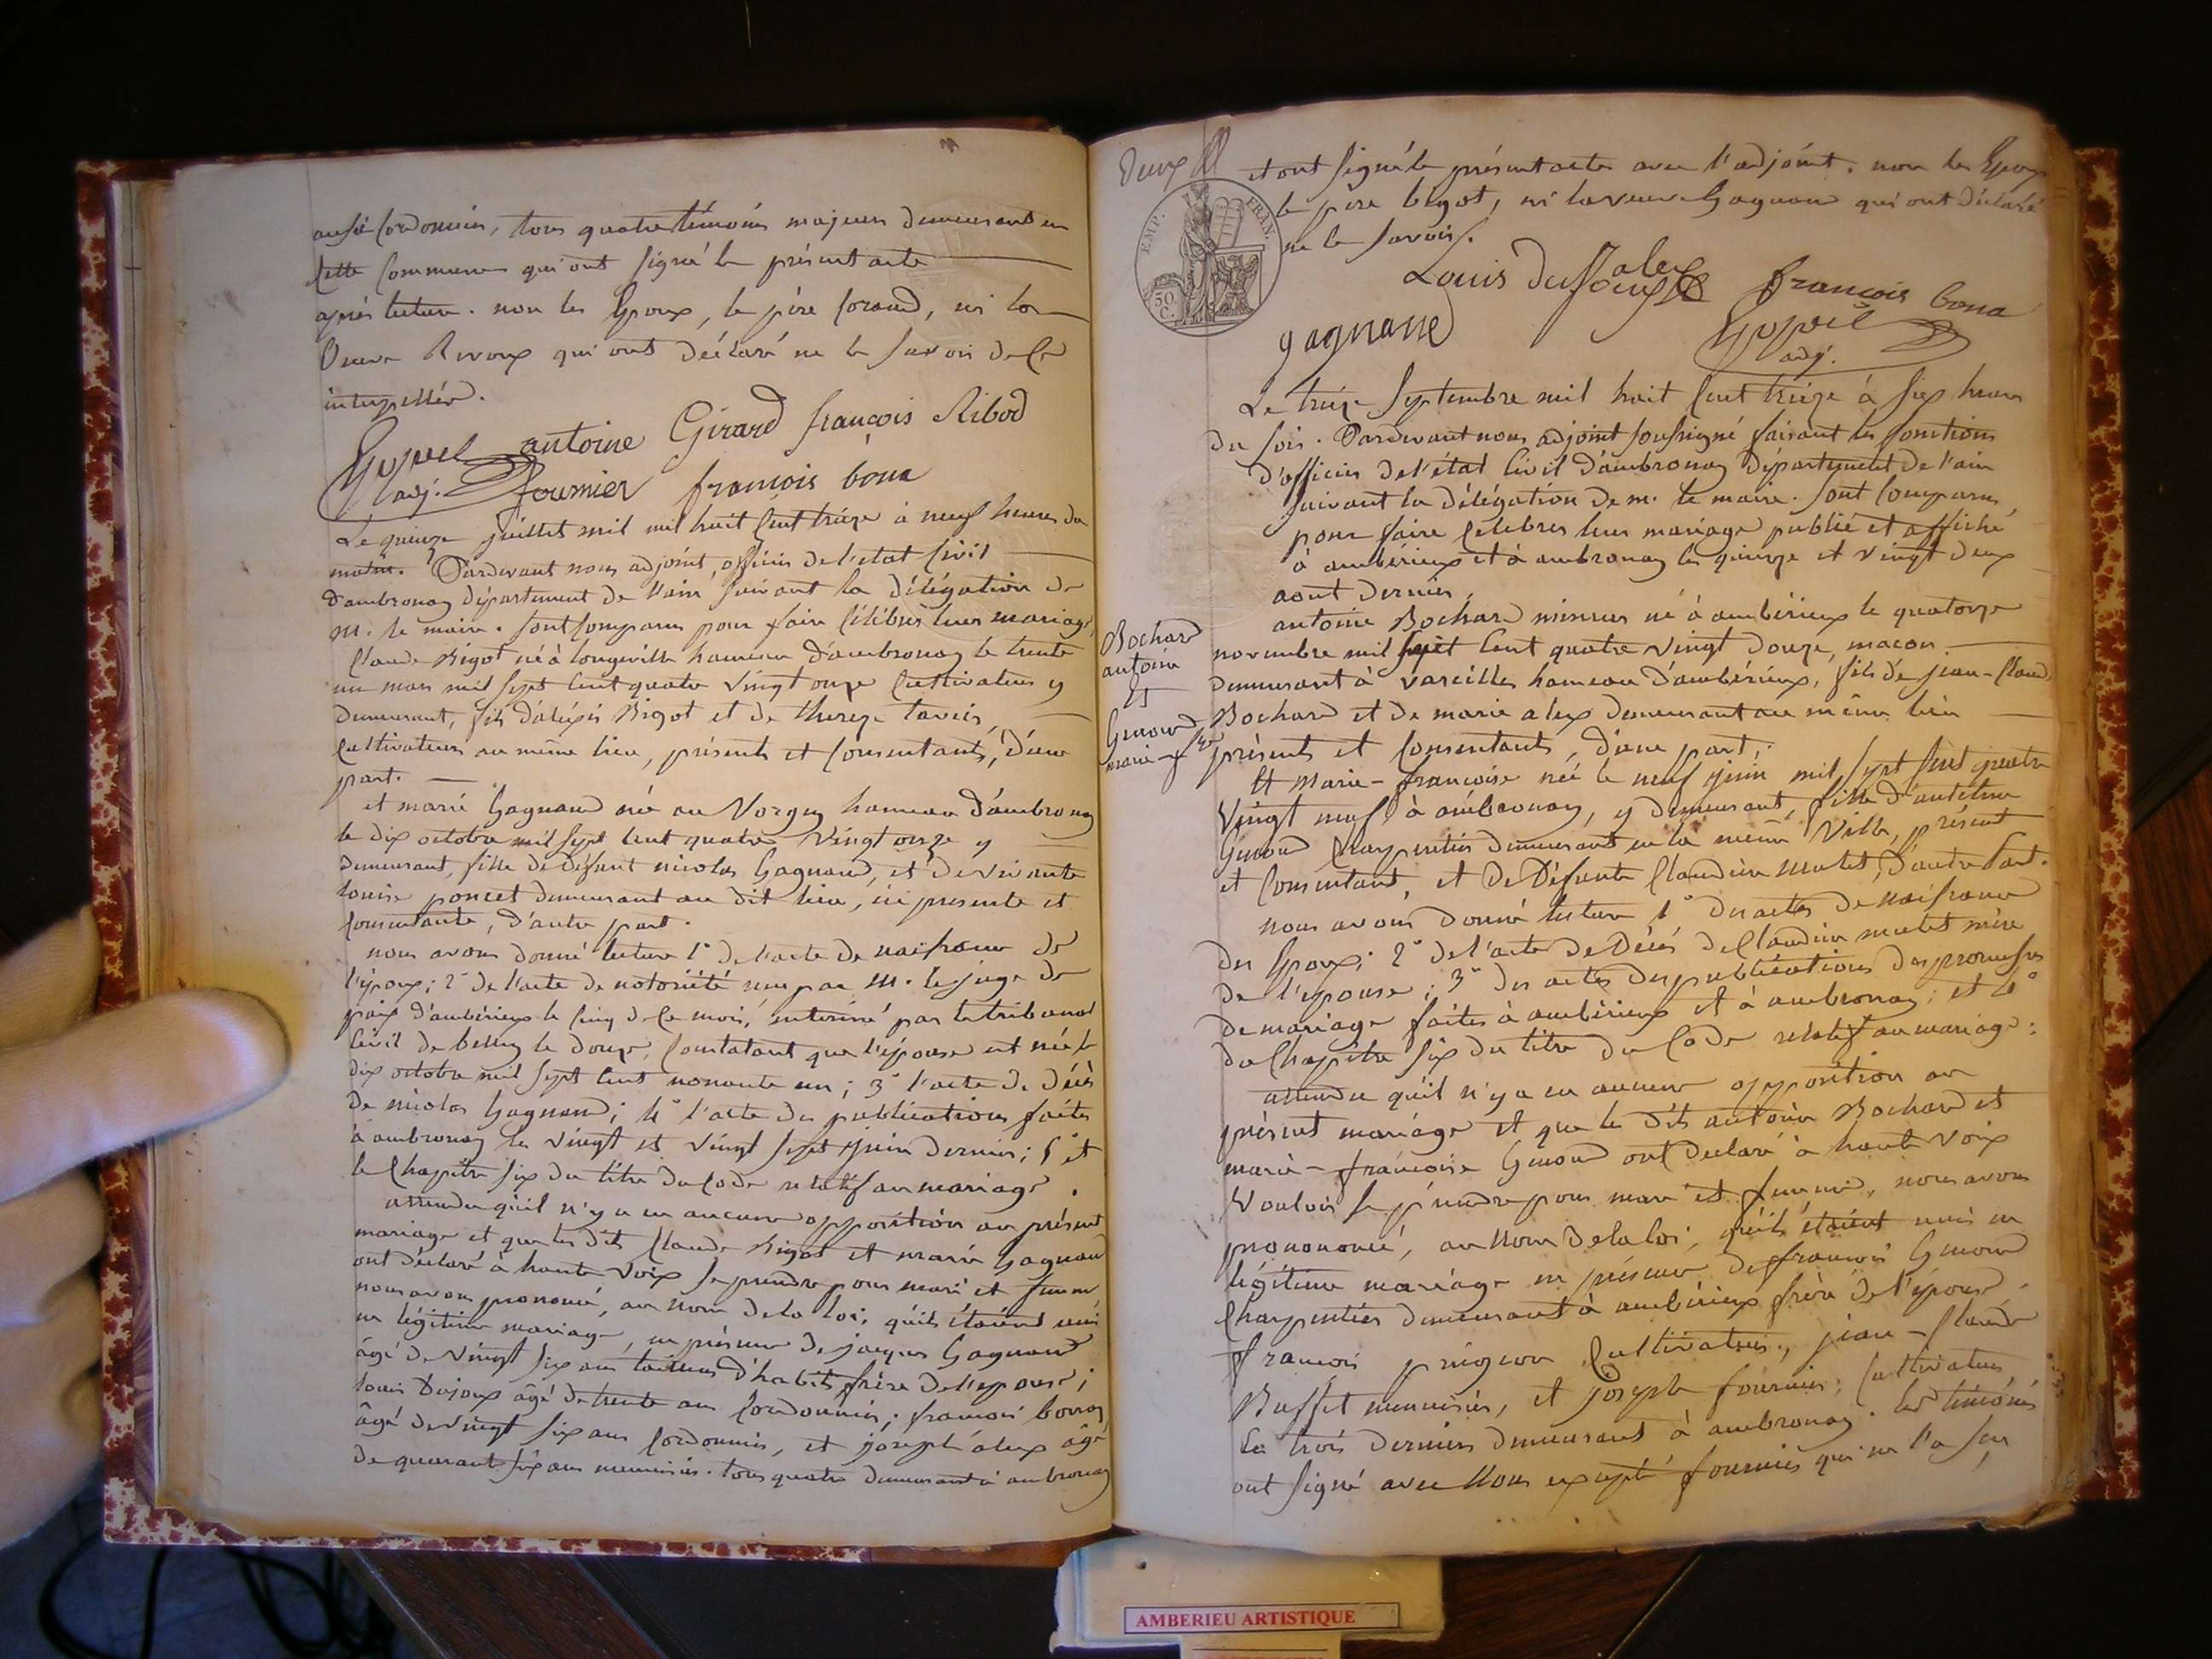 aussi Cordonnier, tous quatre témoins majeurs demeurant en
Cette Commune qui ont signé le présent acte
après lecture. non les Epoux, le père Corand, ni la
Veuve Rivoux qui ont déclaré ne le savoir de ce
interpellés.
Girard françois Ribod
antoine
adj. fournier françois bona
Le quinze juillet mil mil huit Cent treize à neuf heures du
matin. Pardevant nous adjoint, officier de l'etat Civil
d'ambronay département de l'ain suivant la délégation de
M. le maire. sont Comparus pour faire Célébrer leur mariage,
Claude Bigot né à longeville hameau d'ambronay le trente
un mars mil sept Cent quatre Vingt onze Cultivateur y
demeurant, fils d'aléxis Bigot et de thérèze
Cultivateurs au même lieu, présents et Consentants, d'une
part.
et marie Gagnand née au Vorgey hameau d'ambronay
le dix octobre mil sept Cent quatre Vingt onze y
demeurant, fille de défunt nicolas Gagnand, et de vivante
louise poncet demeurant au dit lieu, ici presente et
Consentante, d'autre part.
nous avons donné lecture 1° de l'acte de naissance de
l'époux; 2° de l'acte de notoriété reçu par M. le juge de
paix d'ambérieux le Cinq de Ce mois, par le tribunal
Civil de belley le douze, Constatant que l'épouse est née le
dix octobre mil sept Cent nonante un; 3° l'acte de décès
de nicolas Gagnand; 4° l'acte des publications faites
à ambronay les Vingt et Vingt sept juin dernier; 5° et
le Chapitre six du titre du Code relatif au mariage.
attendu qu'il n'y a eu aucune opposition au présent
mariage et que les dits Claude Bigot et marie Gagnand
ont déclaré à haute Voix se prendre pour mari et femme
nous avons prononcé, au nom de la loi, qu'ils étaient unis
en légitime mariage, en présence de jacques Gagnand
âgé de Vingt six ans tailleur d'habits frère de l'epouse;
louis Dujoux âgé de trente ans Cordonnier; francois bonaz
âgé de Vingt six ans Cordonnier, et joseph alex âgé
de quarante six ans menuisier. tous quatre demeurant à ambronay
Deux
EMP. FRAN.
50 C.
et ont signé le présent acte avec l'adjoint. non les Epoux
le père bigot, ni la veuve Gagnand qui ont déclaré
ne le savoir.
Louis dujoux alex françois bona
gagnand
adj.
Le treize Septembre mil huit Cent treize à six heures
du soir. Pardevant nous adjoint soussigné faisant les fonctions
d'officier de l'état Civil d'ambronay département de l'ain
suivant la délégation de m. le maire. sont Comparus
pour faire Celebrer leur mariage publié et affiché
à ambérieux et à ambronay les quinze et Vingt deux
aout dernier,
Bochard
antoine
et
Genoud
marie-fse
antoine Bochard mineur né à ambérieux le quatorze
novembre mil sept Cent quatre Vingt douze, macon
demeurant à vareilles hameau d'ambérieux, fils de jean-Claude
Bochard et de marie alex demeurant au même lieu
présents et Consentants, d'une part;
Et Marie-francoise née le neuf juin mil sept Cent quatre
Vingt neuf à ambronay, y demeurant, fille d'antelme
Genoud Charpentier demeurant en la même Ville, présent
et Consentant, et de Défunte Claudine mutet, d'autre Part.
nous avons donné lecture 1° des actes de naissance
des Epoux; 2° de l'acte de Décés de Claudine mutet mère
de l'epouse; 3° des actes des publications des promesses
de mariage faites à ambérieux et à ambronay; et 4°
du Chapitre six du titre du Code relatif au mariage:
attendu qu'il n'y a eu aucune opposition au
présent mariage et que les dits antoine Bochard et
marie-francoise Genoud ont declaré à haute Voix
Vouloir se prendre pour mari et femme, nous avons
prononcé, au Nom de la loi, qu'ils étaient unis en
légitime mariage en présence de francois Genoud
Charpentier demeurant à ambérieux frère de l'épouse.
francois Cultivateur, jean-Claude
Buffet menuisier, et joseph fournier, Cultivateur
Les trois derniers demeurant à ambronay. les témoins
ont signé avec Nous excepté fournier qui ne l'a seu
AMBERIEU ARTISTIQUE